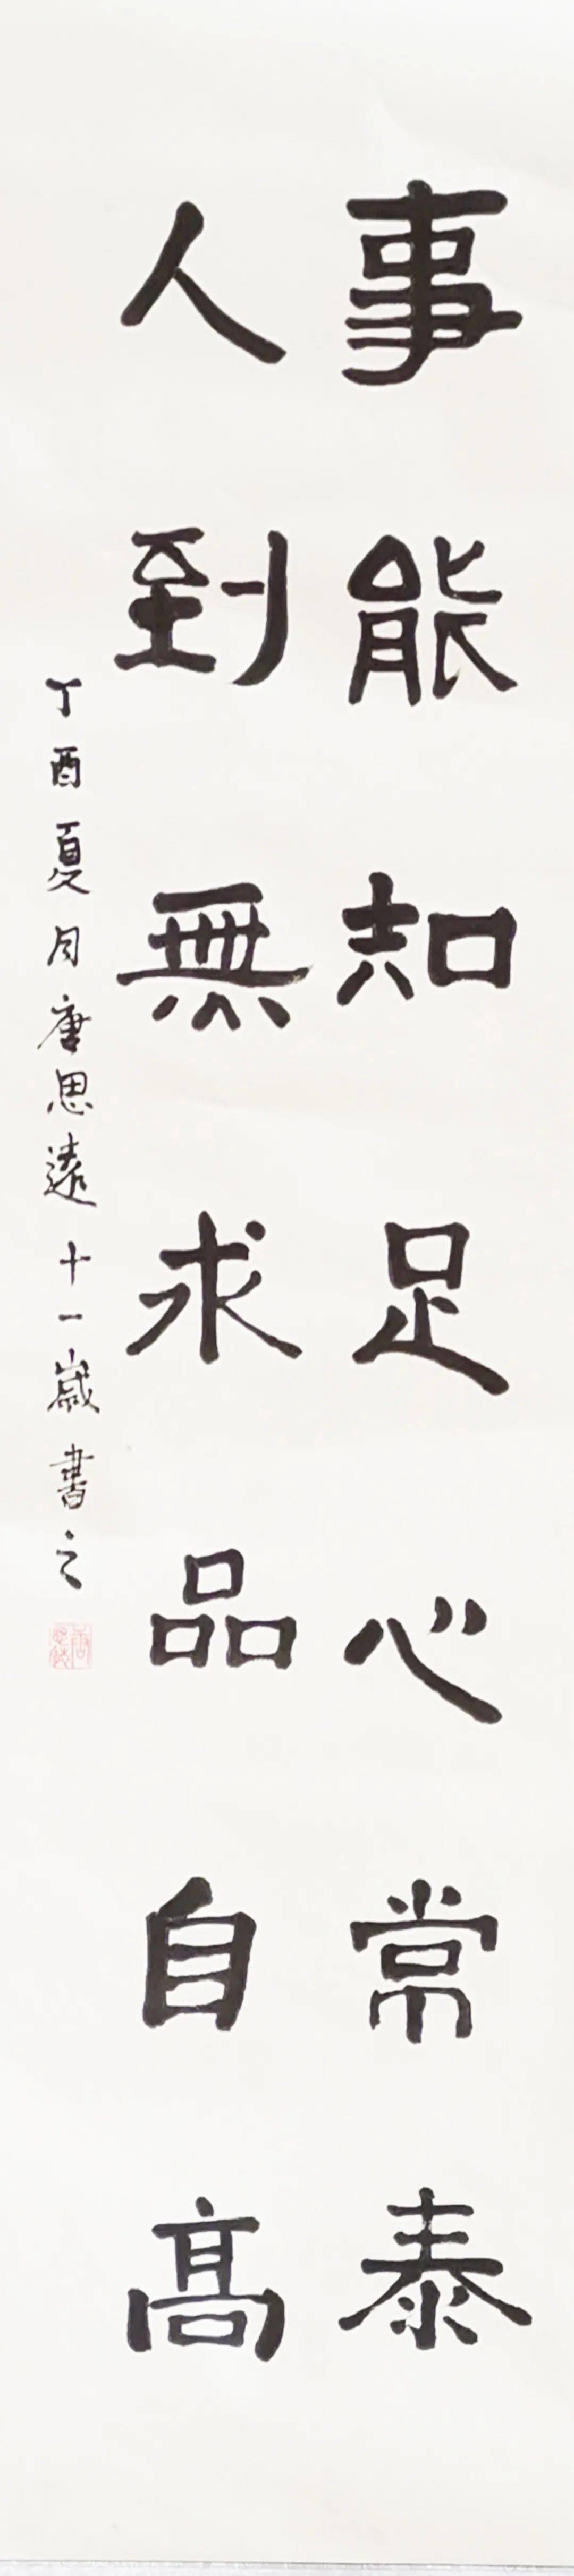 事能知足心常泰
人到無求品自高
丁酉夏月唐思遠十一歲書之